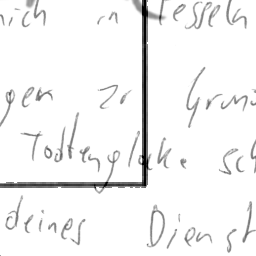 mich in Fesseln
gen zu Grun
Todtenglocke sch
deines Dienst